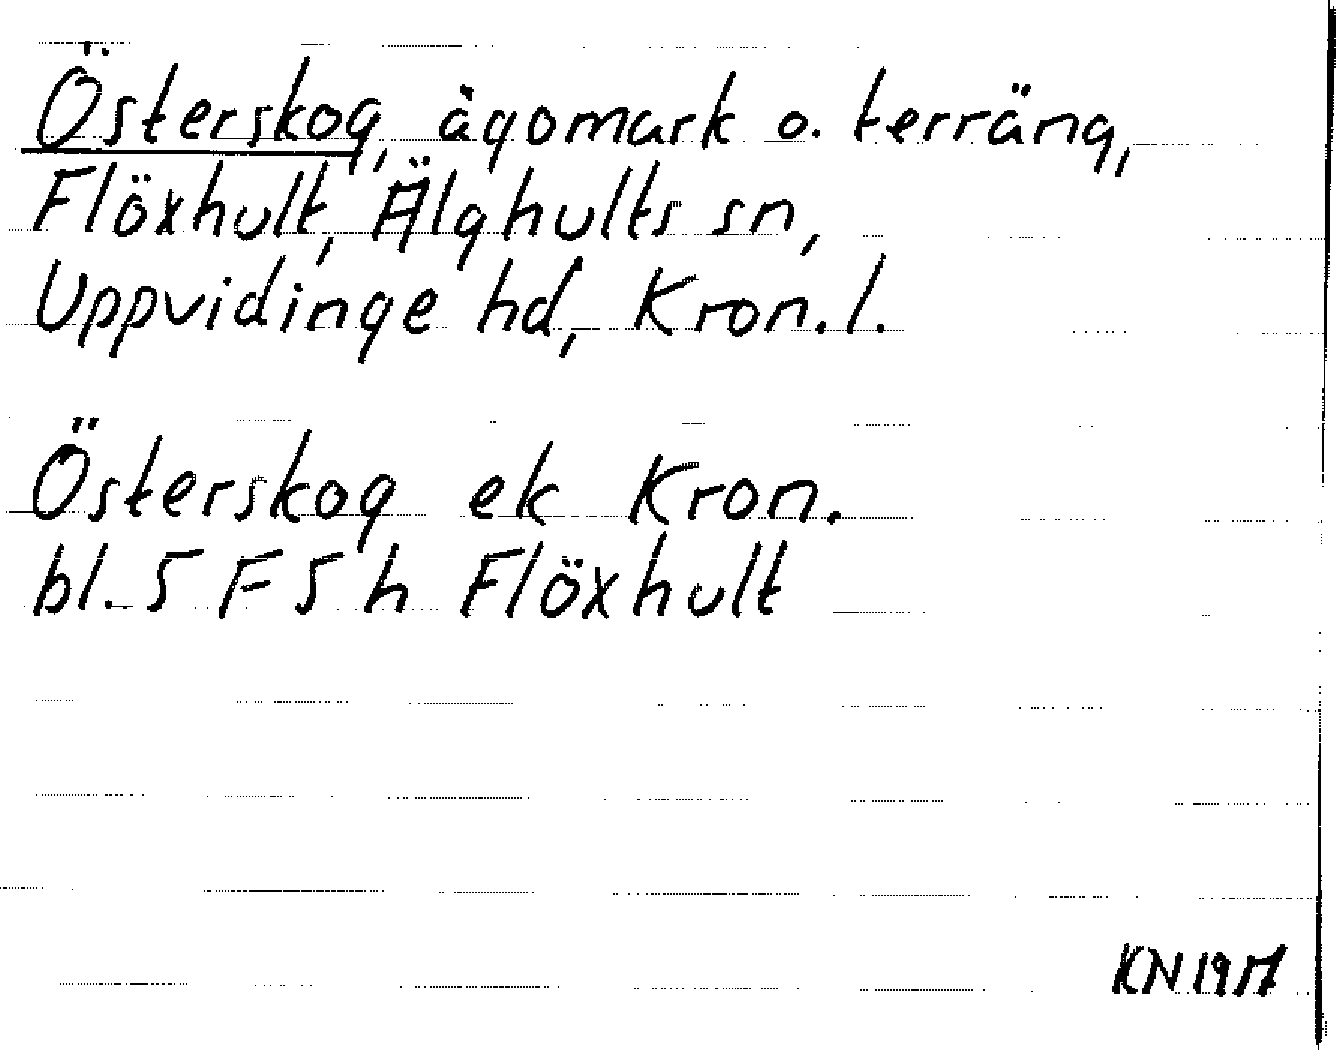 Österskog, ägomark o. terräng,
Flöxhult, Älghults sn,
Uppvidinge hd, Kron. l.
Österskog ek Kron.
bl. 5 F 5 h Flöxhult
KN